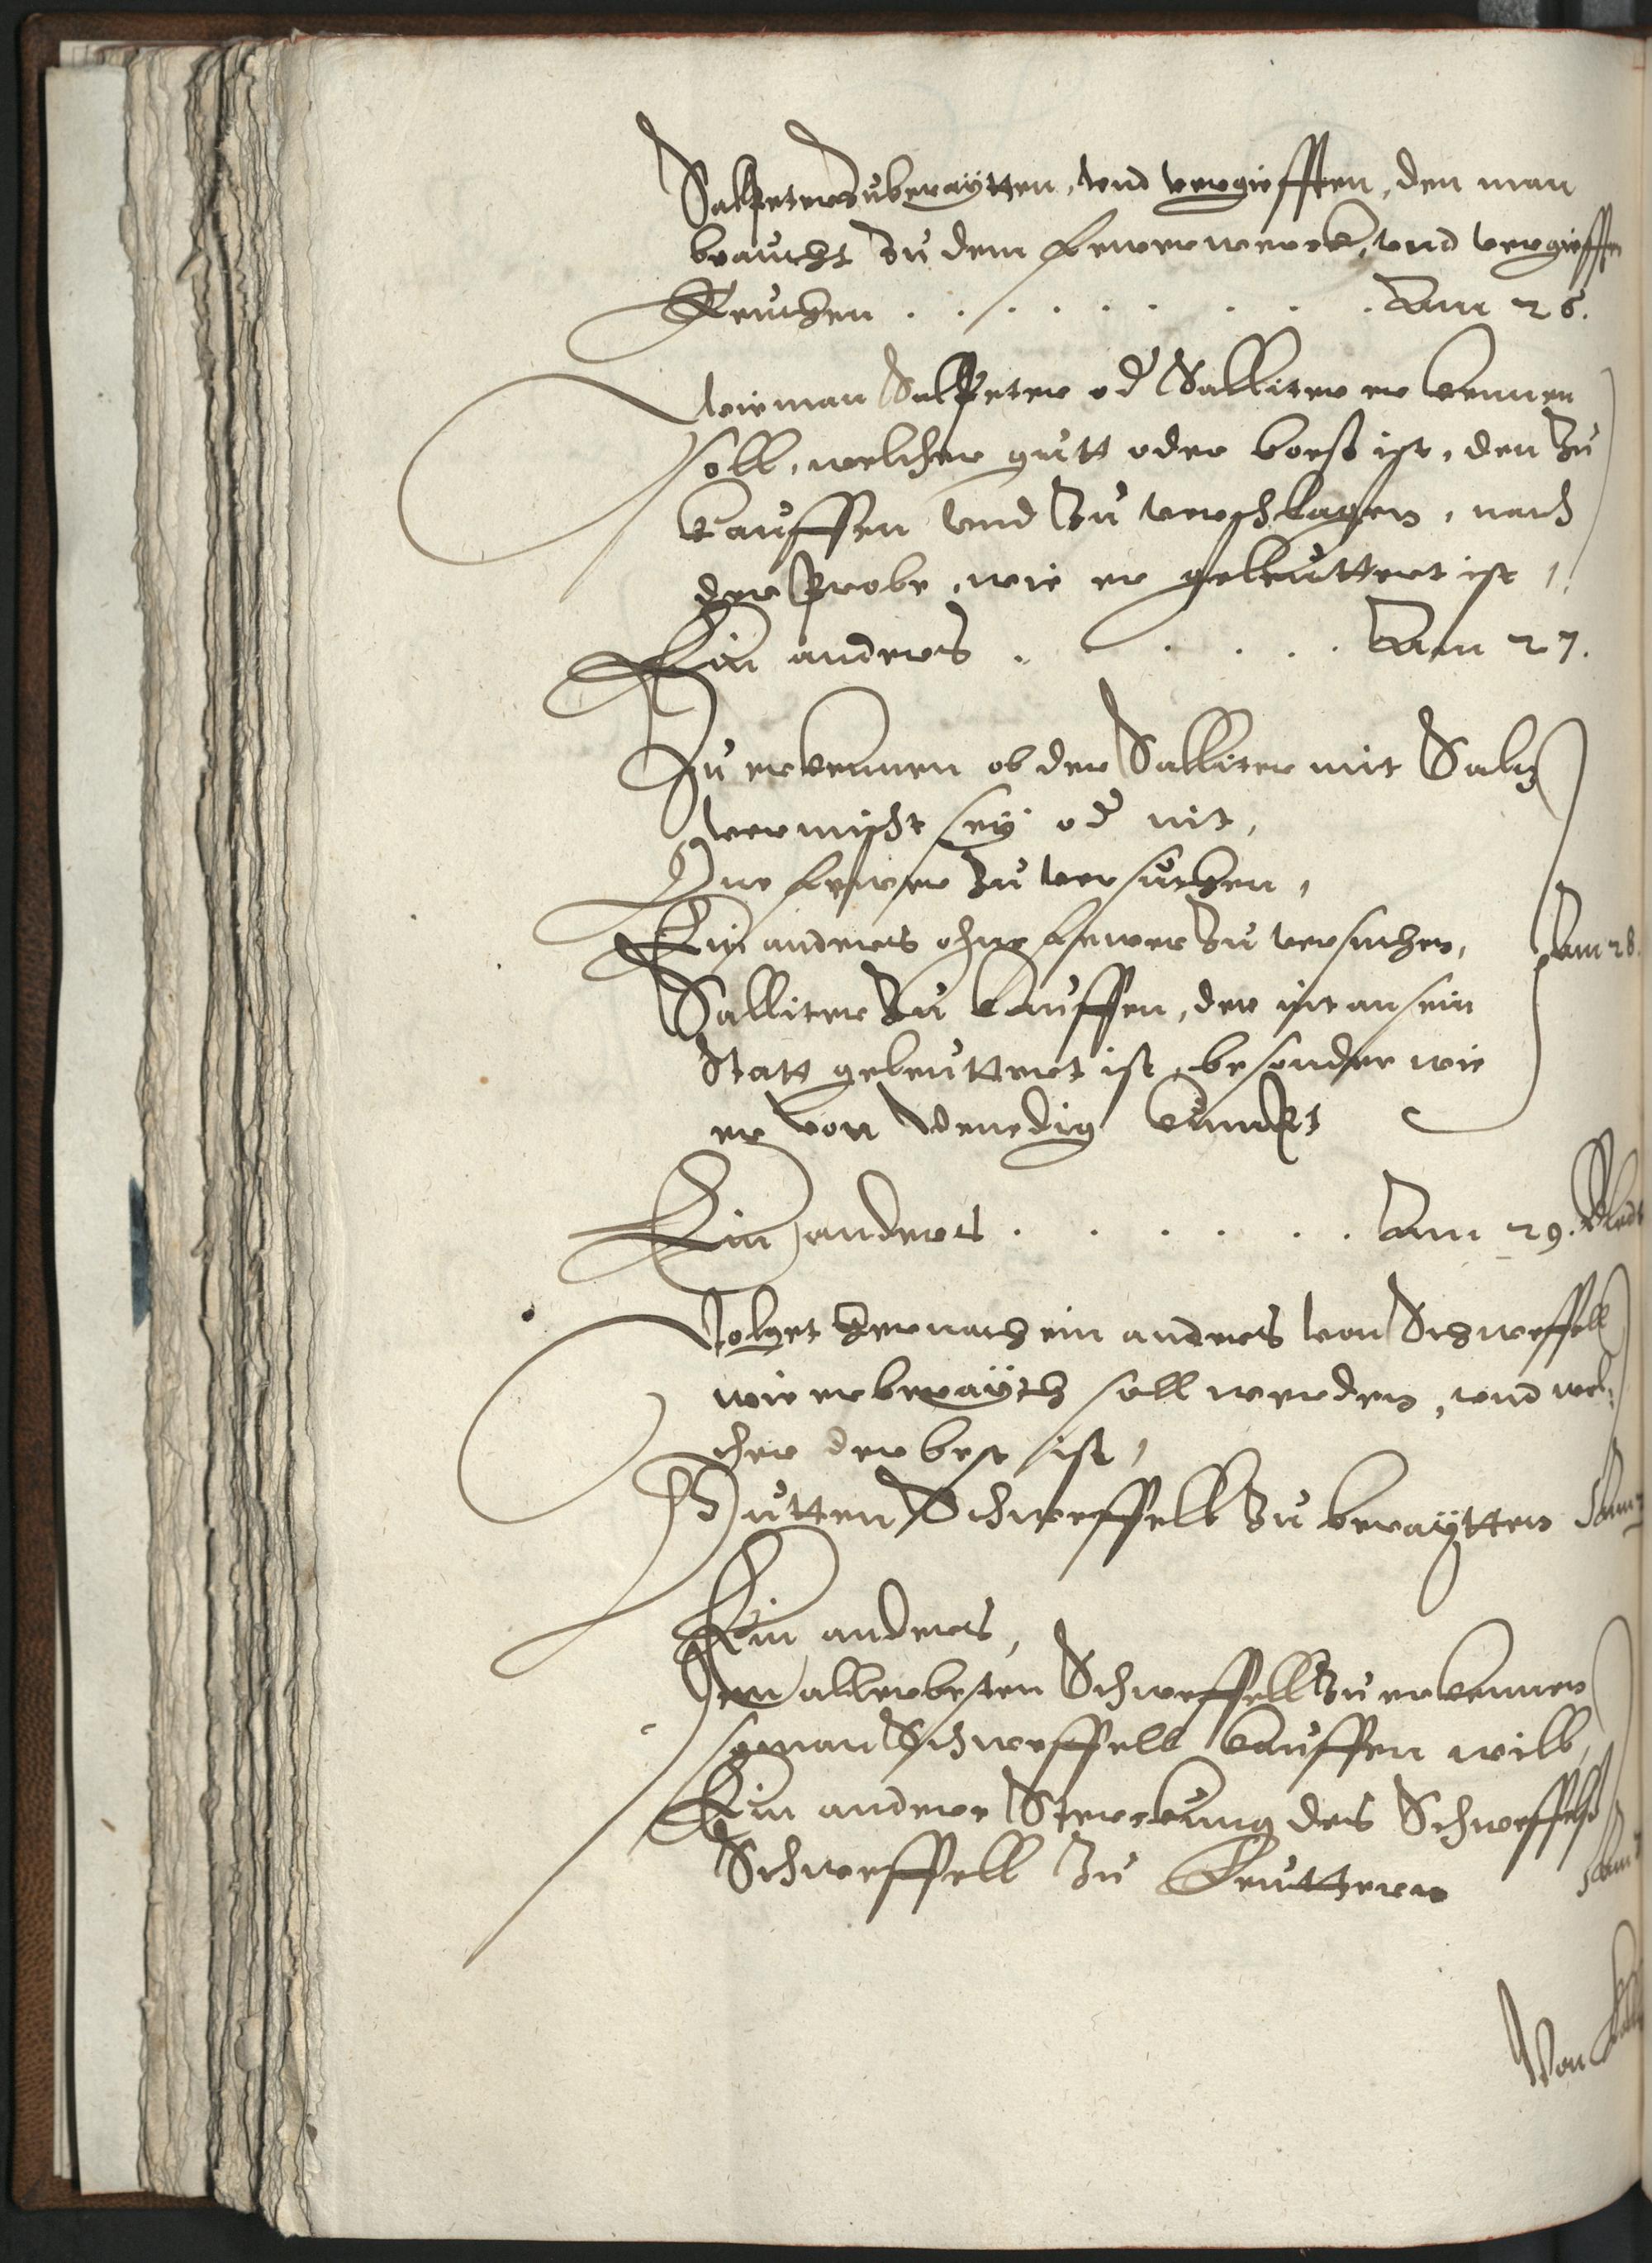 Salpeter zu beraÿtten, vnd vergiefften, den man
braucht zu dem fewerwerck, vnd vergifften
Reuchen . . . . . . . . . Am 26.
Wie man Salpeter od Salliter er kennen
soll, welcher gutt oder boeß ist, den zu
kauffen vnd zu verschlagen, nach
der Prob, wie er geleuttert ist,
Ein anders . . . . . Am 27.
Zu erkennen ob der Salliter mit Saltz
vermischt seÿ od nit,
One fewer zu versuchen,
Ein anders ohne fewer zu versuchen,
Am 28.
Salliter zu kauffen, der nit an sein
Statt geleuttert ist, besonder wie
er von Venedig kumpt
Ein anders . . . . . . Am 29. Bladt
Volget hernach ein anders von Schweffell
wie er beraÿth soll werden, vnd wel:
cher der best ist,
Gutten Schweffell zu beraÿtten Am
Ein anders,
Den allerbesten Schweffell zu erkennen
so man Schweffell kauffen will,
Ein andere Sterckung des Schweffelß
Schweffell zu Leuttern Am
Von